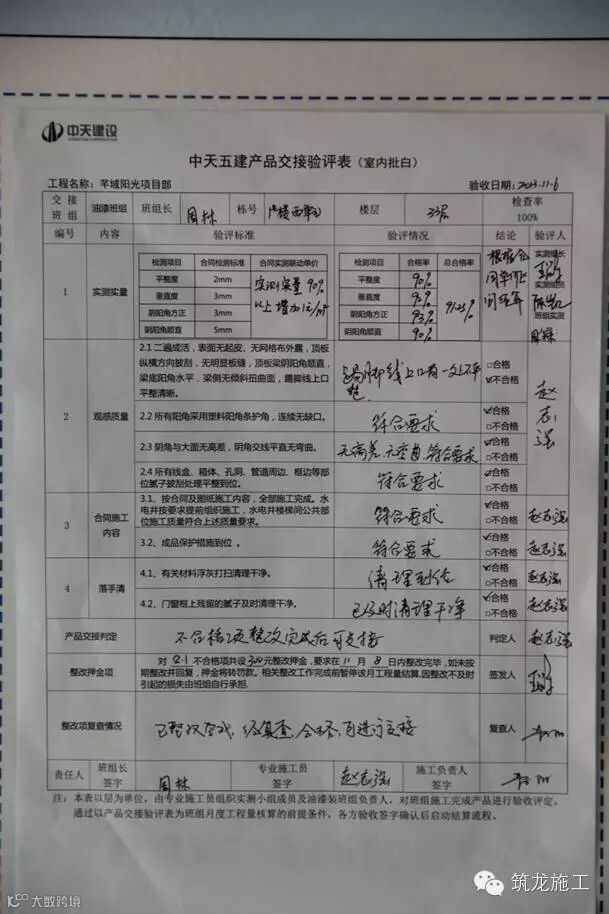 中天建设
中天五建产品交接验评表（室内批白）
工程名称：芊域阳光项目部 验收日期：2013.11.6
交接班组 油漆班组 班组长 周林 栋号 楼层 33层 检查率 100%
编号 内容 验评标准 验评情况 结论 验评人
1 实测实量
检测项目 合同检测标准 合同实测联动单价 检测项目 合格率 总合格率
平整度 2mm 平整度 90%
垂直度 3mm 垂直度
阴阳角方正 3mm 阴阳角方正
阴阳角顺直 5mm 阴阳角顺直 90%
实测实量90%
以上增加1元/m²
实测组长
实测组员
班组实测
2 观感质量
2.1 二遍成活，表面无起皮、无网格布外露，顶板
纵横方向披刮，无明显板缝，顶板梁阴阳角顺直，
梁底阳角水平，梁侧无倾斜扭曲面，踢脚线上口
平整清晰。
踢脚线上口有一处不平整
□合格
☑不合格
赵志强
2.2 所有阳角采用塑料阳角条护角，连续无缺口。 符合要求
☑合格
□不合格
2.3 阴角与大面无高差，阴角交线平直无弯曲。 无高差、无弯曲、符合要求
☑合格
□不合格
2.4 所有线盒、箱体、孔洞、管道周边、框边等部
位腻子披刮处理平整到位。
符合要求
☑合格
□不合格
3 合同施工内容
3.1、按合同及图纸施工内容，全部施工完成。水
电井按要求提前组织施工，水电井楼梯间公共部
位施工质量符合上述质量要求。
符合要求
☑合格
□不合格
赵志强
3.2、成品保护措施到位 。 符合要求
☑合格
□不合格
赵志强
4 落手清
4.1、有关材料浮灰打扫清理干净。 清理到位
☑合格
□不合格
赵志强
4.2、门窗框上残留的腻子及时清理干净。 已及时清理干净
☑合格
□不合格
赵志强
产品交接判定 不合格项整改完成后可交接 判定人 赵志强
整改押金项
对 2.1 不合格项共设 300 元整改押金，要求在 11 月 8 日内整改完毕，如未按
期整改并回复，押金将转罚款。相关整改工作完成前暂停该月工程量结算，因整改不及时
引起的损失由班组自行承担.
签发人
整改项复查情况 已整改完成，经复查，合格，可进行交接 复查人
责任人 班组长签字 周林 专业施工员签字 赵志强 施工负责人签字
注：本表以层为单位，由专业施工员组织实测小组成员及油漆装班组负责人，对班组施工完成产品进行验收评定，
通过以产品交接验评表为班组月度工程量核算的前提条件，各方验收签字确认后启动结算流程。
筑龙施工
大数跨境